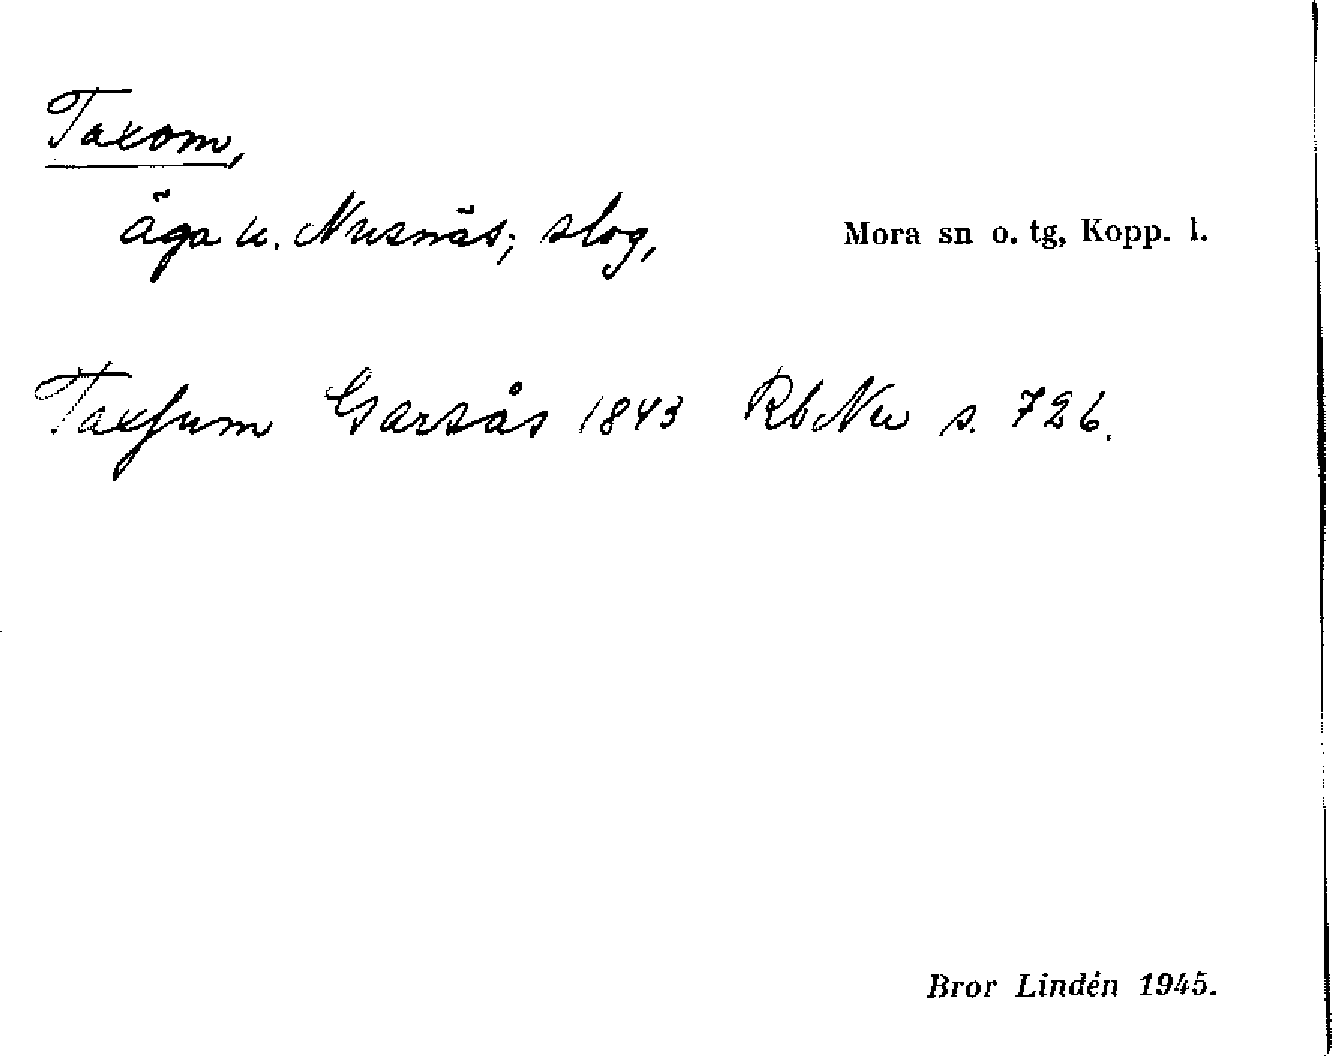 Taxom,
äga u. Nusnäs; slog, Mora sn o. tg, Kopp. l.
Taxsum Garsås 1843 RbNu s. 726.
Bror Lindén 1945.